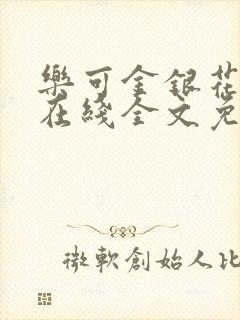 樂可金銀花
在綫全文免
微軟創始人比